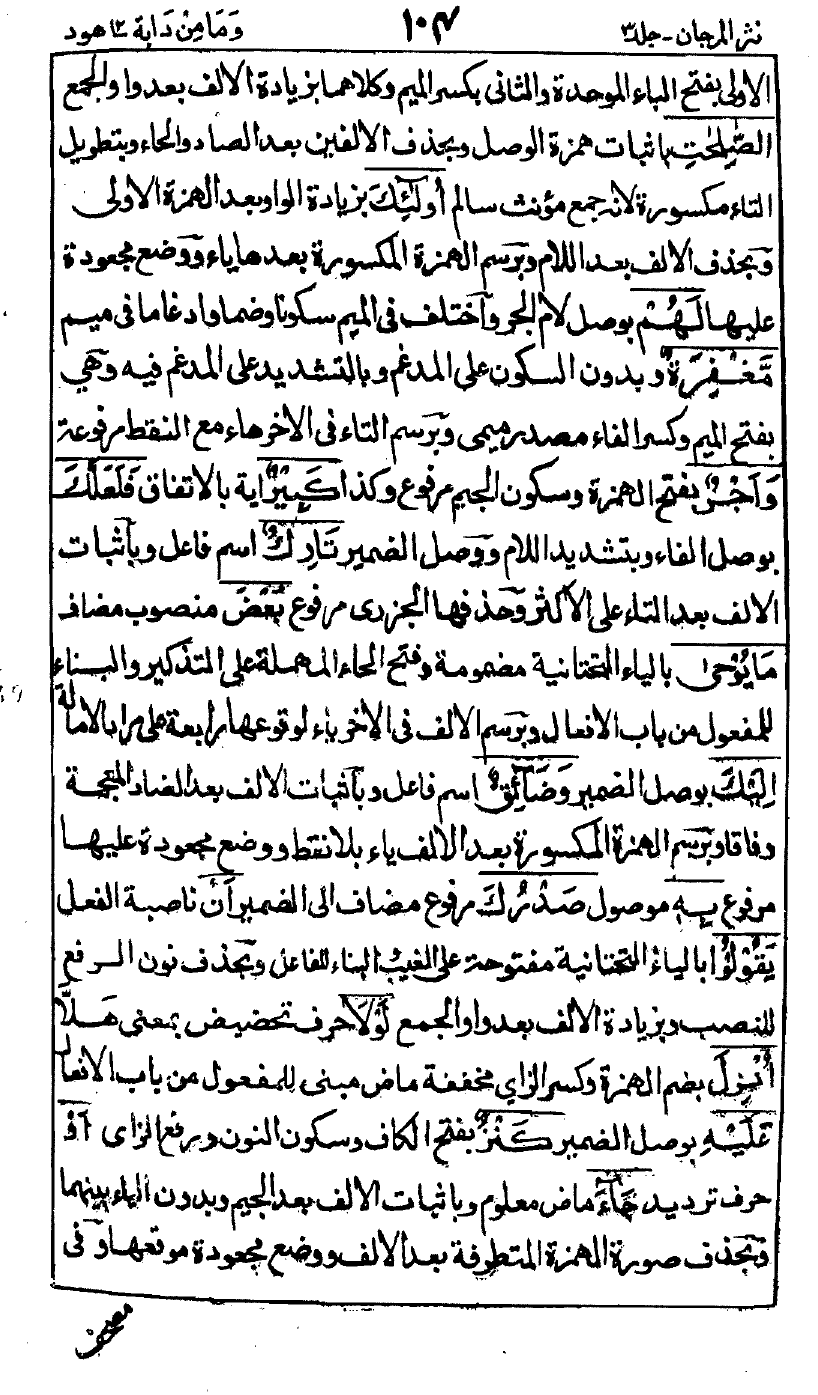 نثر المرجان - جلد ٣ ١٠٤ وَمَا مِنْ دَابة ١٢ هود
الاولى بفتح الباء الموحدة والثانى بكسر الميم وكلاهما بزيادة الالف بعد واو الجمع
الصّٰلِحٰتِ باثبات همزة الوصل وبحذف الالفين بعد الصاد والحاء وبتطويل
التاء مكسورة لانه جمع مؤنث سالم أُولٰٓئِكَ بزيادة الواو بعد الهمزة الاولى
وبحذف الالف بعد اللام وبرسم الهمزة المكسورة بعدها ياء ووضع مجعودة
عليها لَهُمْ بوصل لام الجر واختلف فى الميم سكونا وضما وادغاما فى ميم
مَّغْفِرَةٌ وبدون السكون على المدغم وبالتشديد على المدغم فيه وهي
بفتح الميم وكسر الفاء مصدر ميمى وبرسم التاء فى الاخر هاء مع النقط مرفوعة
وَأَجْرٌ بفتح الهمزة وسكون الجيم مرفوع وكذا كَبِيرٌ اية بالاتفاق فَلَعَلَّكَ
بوصل الفاء وبتشديد اللام ووصل الضمير تَارِكٌ اسم فاعل وباثبات
الالف بعد التاء على الأكثر وحذفها الجزرى مرفوع بَعْضَ منصوب مضاف
مَا يُوْحٰى بالياء التحتانية مضمومة وفتح الحاء المهملة على التذكير والبناء
للمفعول من باب الافعال وبرسم الالف فى الاخر ياء لوقوعها رابعة على مراد الامالة
اِلَيْكَ بوصل الضمير وَضَآئِقٌ اسم فاعل وباثبات الالف بعد الضاد المعجمة
وفاقا وبرسم الهمزة المكسورة بعد الالف ياء بلا نقط ووضع مجعودة عليها
مرفوع بِهٖ موصول صَدْرُكَ مرفوع مضاف الى الضمير أَنْ ناصبة الفعل
يَقُوْلُوْا بالياء التحتانية مفتوحة على الغيب والبناء للفاعل وبحذف نون الرفع
للنصب وبزيادة الالف بعد واو الجمع لَوْلَا حرف تحضيض بمعنى هَلَّا
أُنْزِلَ بضم الهمزة وكسر الزاي مخففة ماض مبنى للمفعول من باب الافعال
عَلَيْهِ بوصل الضمير كَنْزٌ بفتح الكاف وسكون النون ورفع الزاى اَوْ
حرف ترديد جَآءَ ماض معلوم وباثبات الالف بعد الجيم وبدون الياء بينهما
وبحذف صورة الهمزة المتطرفة بعد الالف ووضع مجعودة موقعها وفى